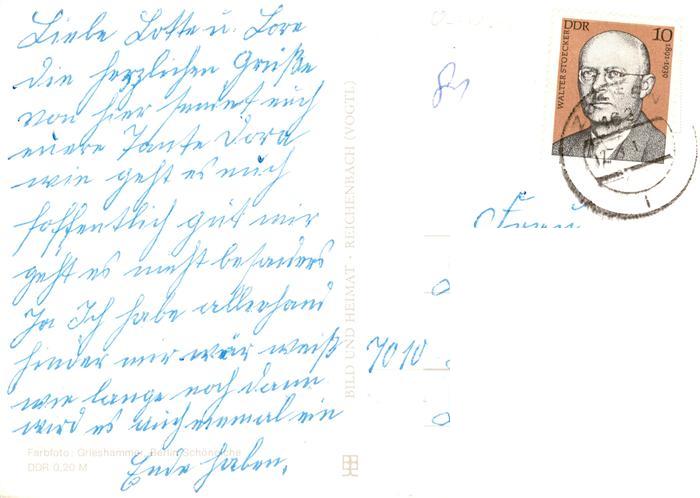 Liebe Lotte u. Lore
die herzlichen Grüße
von hier sendet euch
euere Tante Dora
wie geht es euch
hoffentlich gut mir
geht es nicht besonders
Ja Ich habe allerhand
hinder mir wer weiß
wie lange noch dann
wird es auch einmal ein
Ende haben.
Farbfoto: Grieshammer, Berlin-Schöneiche
DDR 0,20 M
BILD UND HEIMAT · REICHENBACH (VOGTL)
WALTER STOECKER
DDR
10
1891-1939
Frau
7010